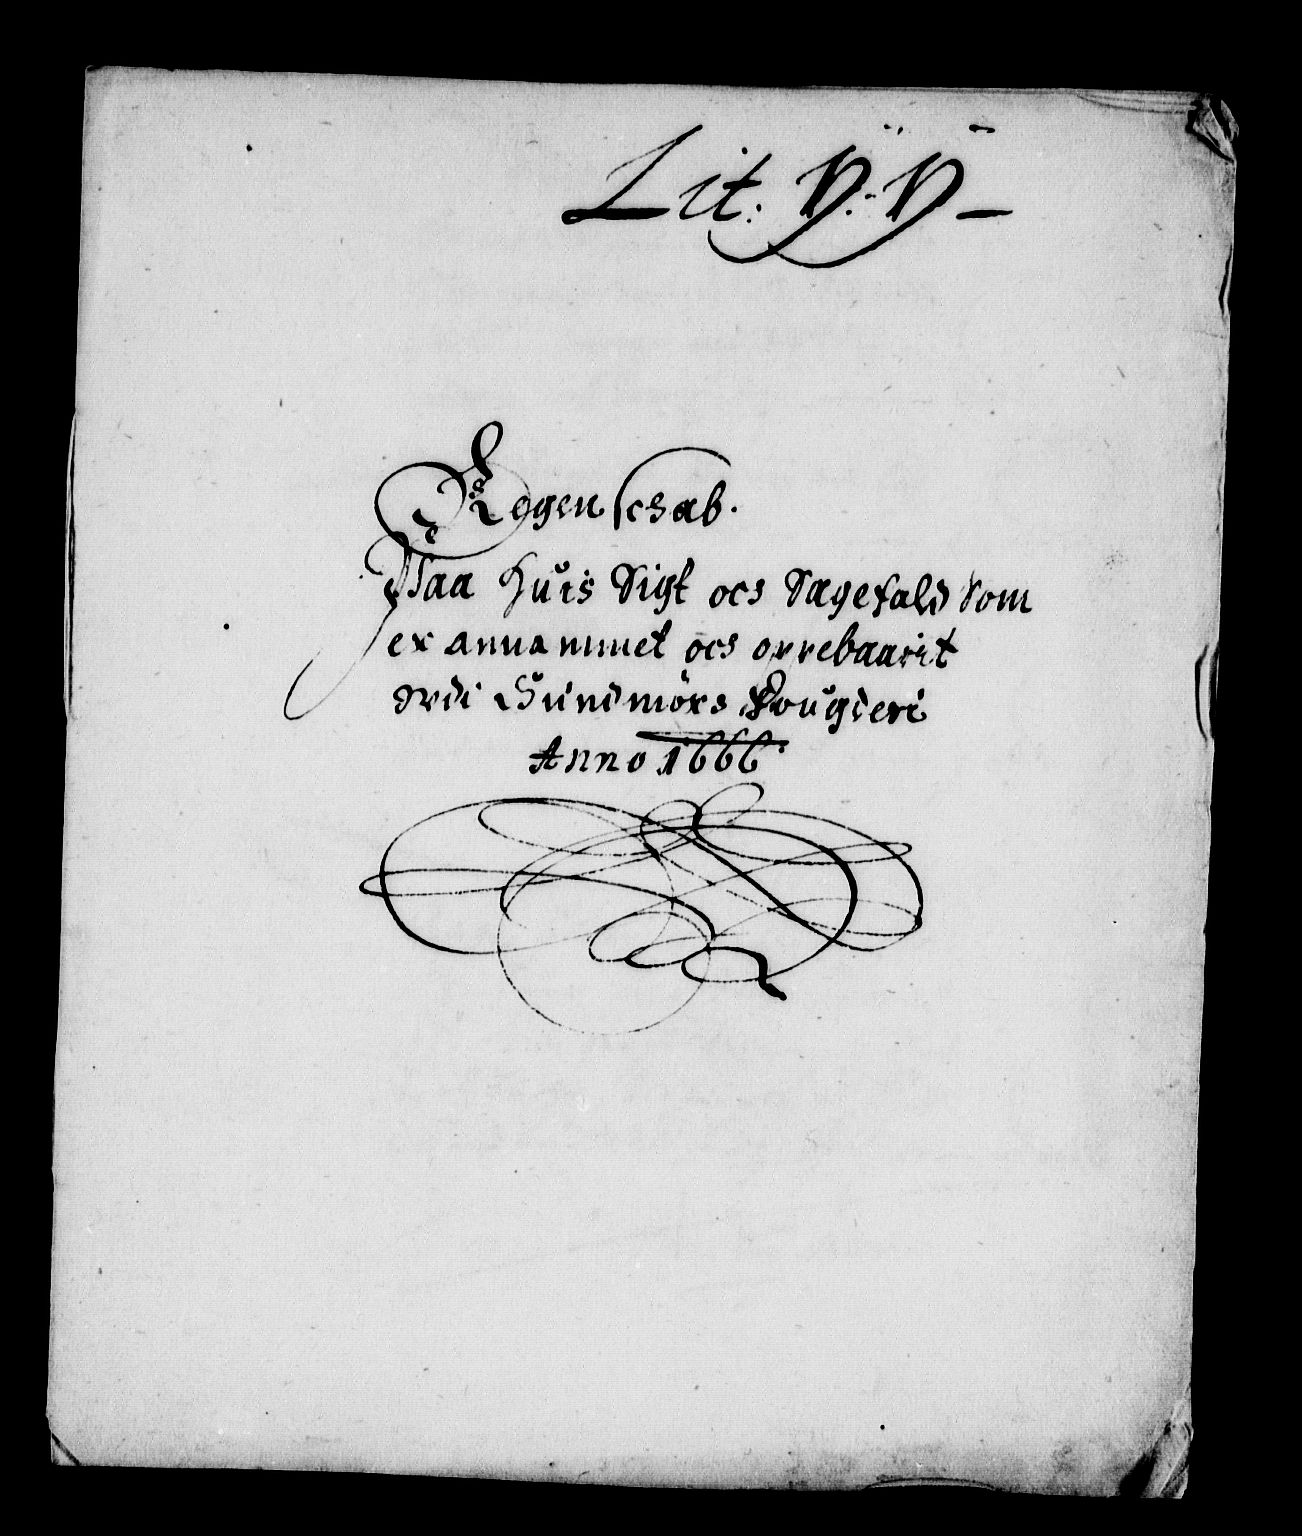 Lit. ÿ. ÿ
Regenschab.
Paa huis Sigt och Sagefald Som
er annammet och oppebaarit
vdi Sundmörs Fougderi
Anno 1666